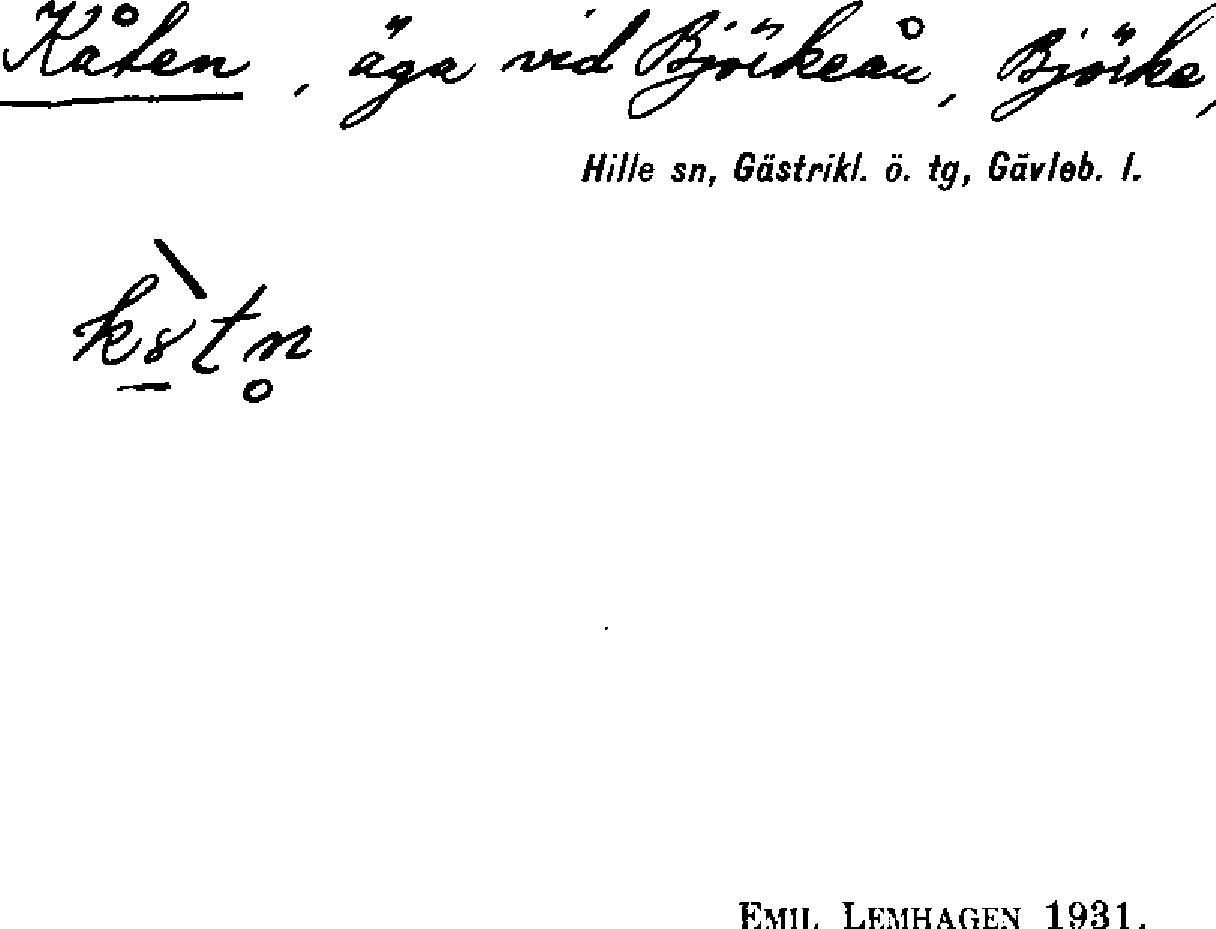 Kåten, äga vid Björkeån, Björke,
Hille sn, Gästrikl. ö. tg, Gävleb. l.
EMIL LEMHAGEN 1931.